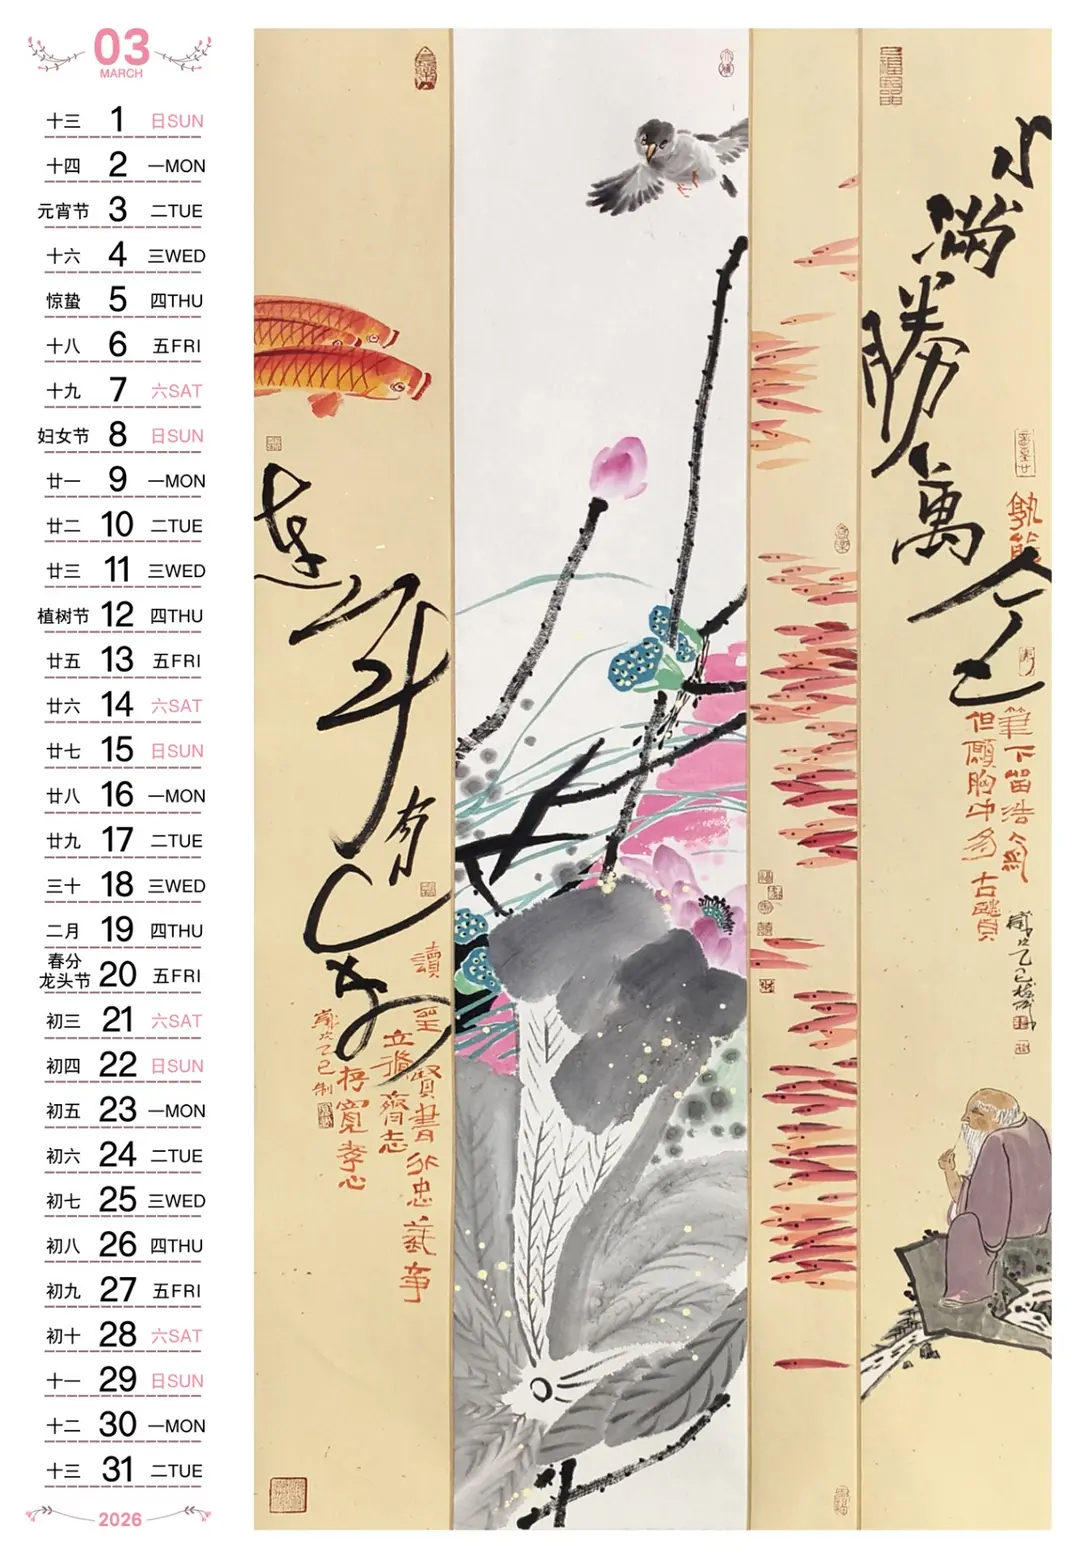 03
MARCH
十三 1 日SUN
十四 2 一MON
元宵节 3 二TUE
十六 4 三WED
惊蛰 5 四THU
十八 6 五FRI
十九 7 六SAT
妇女节 8 日SUN
廿一 9 一MON
廿二 10 二TUE
廿三 11 三WED
植树节 12 四THU
廿五 13 五FRI
廿六 14 六SAT
廿七 15 日SUN
廿八 16 一MON
廿九 17 二TUE
三十 18 三WED
二月 19 四THU
春分
龙头节 20 五FRI
初三 21 六SAT
初四 22 日SUN
初五 23 一MON
初六 24 二TUE
初七 25 三WED
初八 26 四THU
初九 27 五FRI
初十 28 六SAT
十一 29 日SUN
十二 30 一MON
十三 31 二TUE
2026
小满勝萬全
筆下留浩氣
但願胸中多古賢
連年有
讀聖賢書行忠義事
立脩齊志
存寬孝心
乙巳制